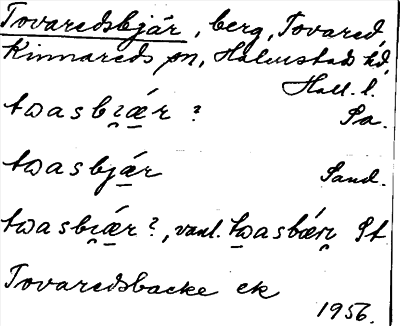 Tovaredsbjär, berg, Tovared,
Kinnareds sn, Halmstads hd,
Hall. l.
twasbɪ̯ǽr ? Sa.
twasbjǽr Sand.
twasbɪ̯ǽr ?, vanl. twasbǽrn̥ St
Tovaredsbacke ek
1956.